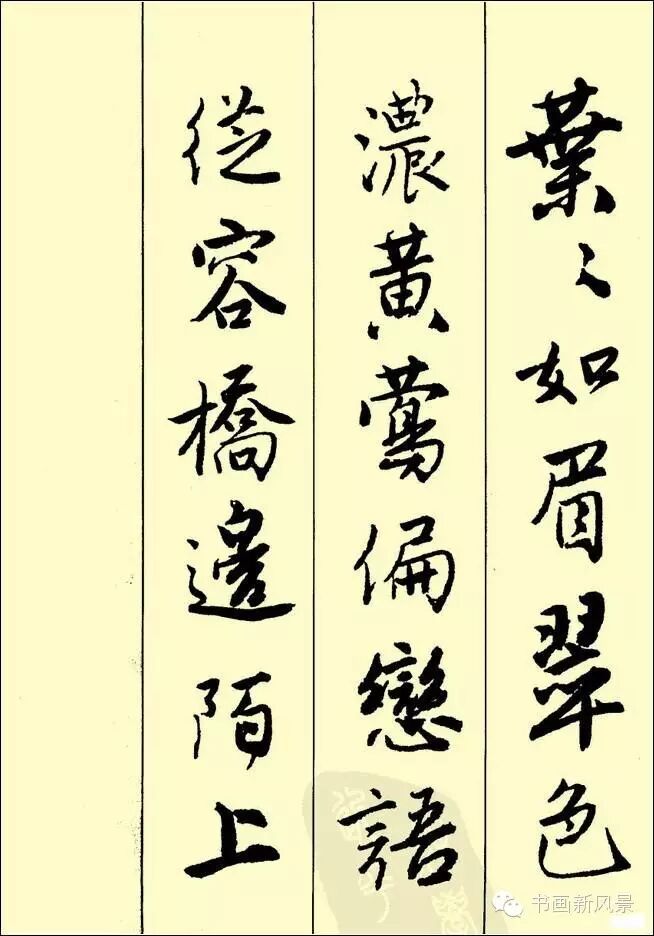 葉〻如眉翠色
濃黃鶯偏戀語
從容橋邊陌上
书画新风景